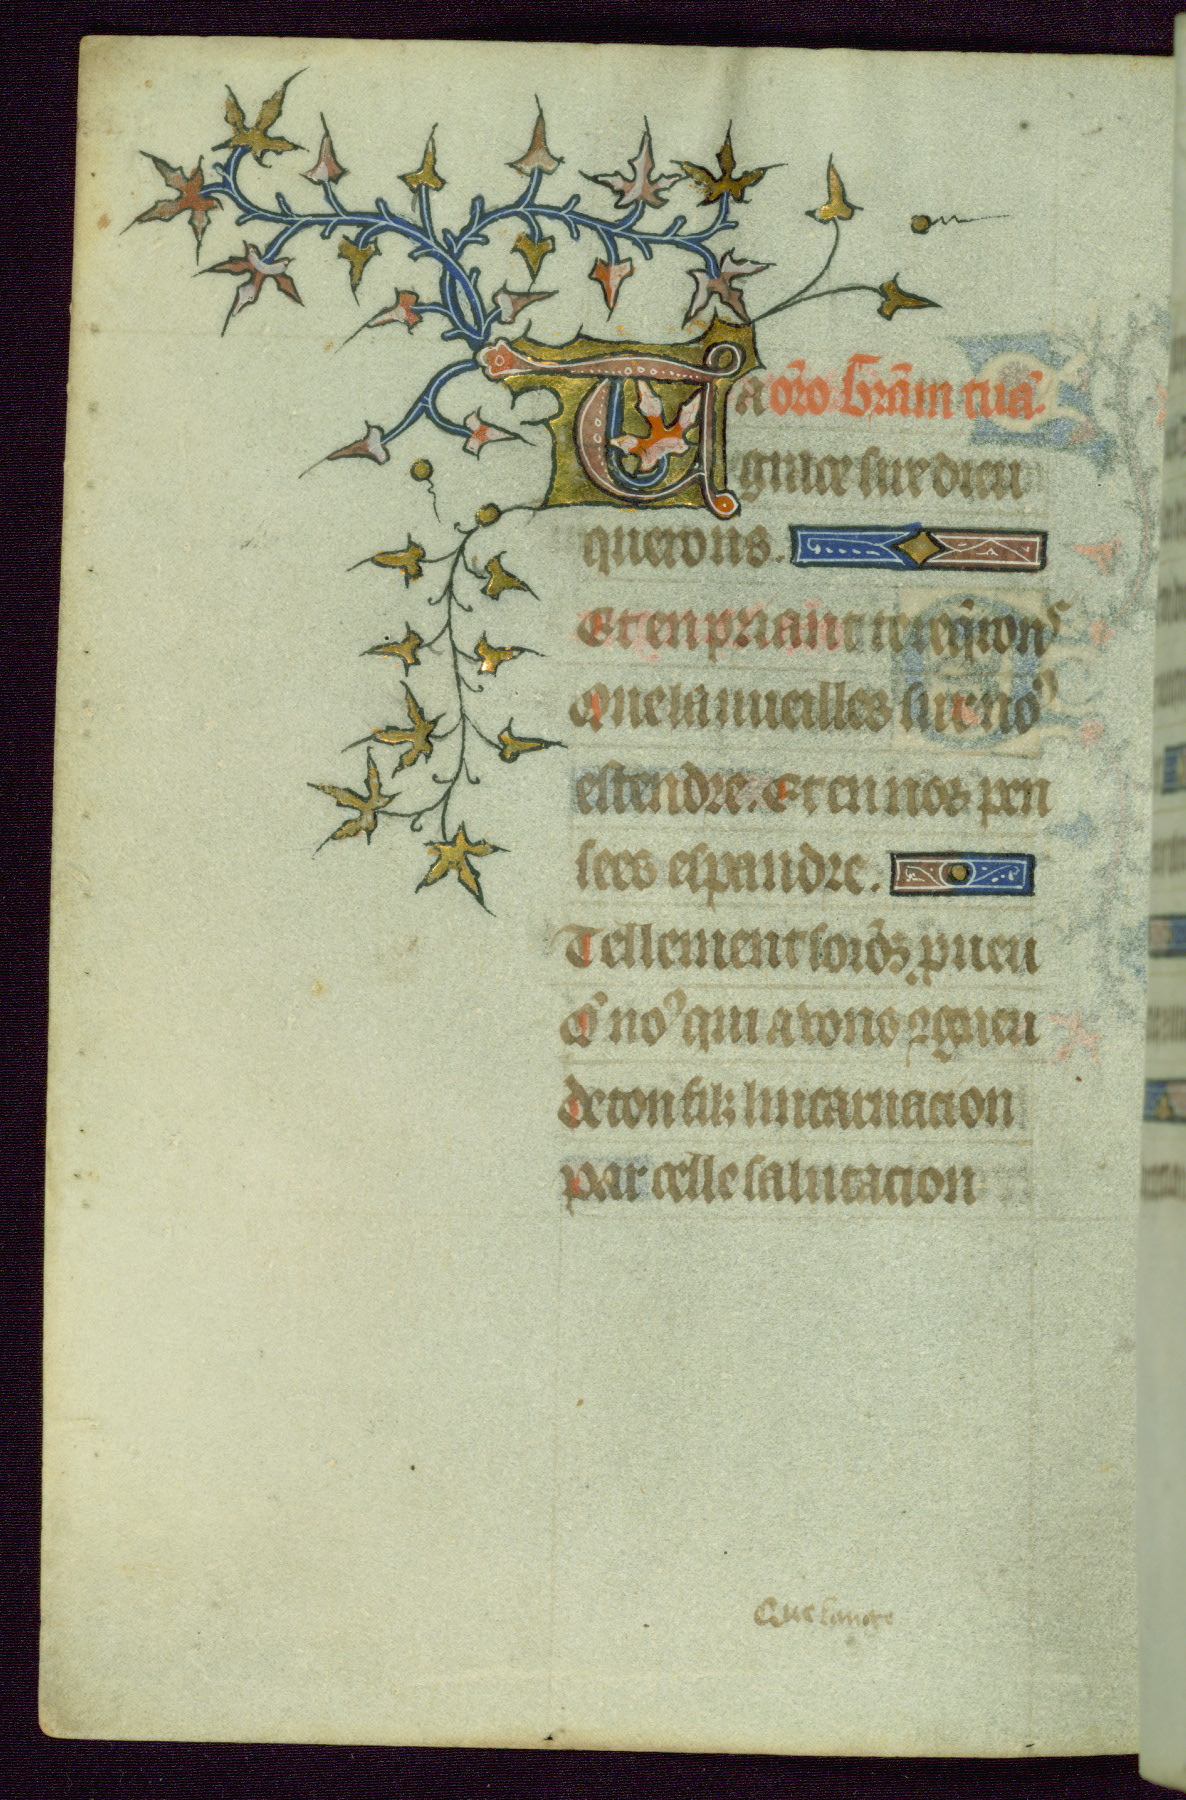 Ta or̄o Grām tuā
grace sire dieu
querons.
Et en priant te req̄rons
Que la uueilles sur no⁹
estendre. Et en nos pen
sees espandre.
Tellement soiōs pueu
Q̄ no⁹ qui auons ꝯgneu
de ton filz lincarnacion
par celle salutacion
Que sancte